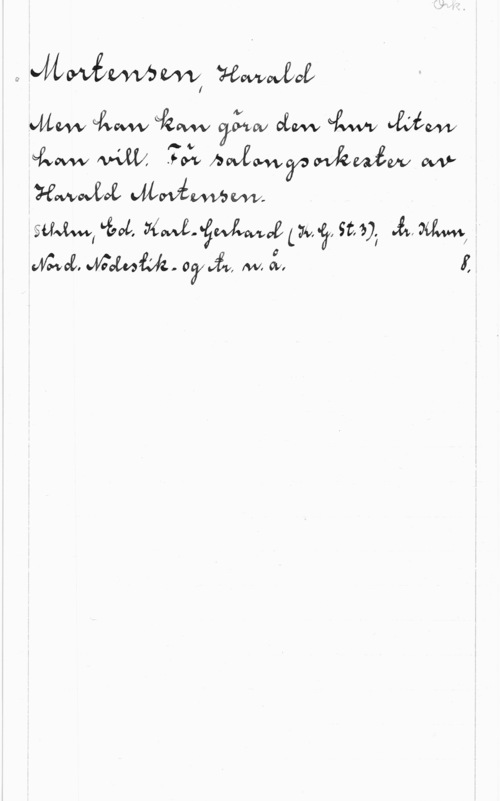 Ork.
Mortensen, Harald
Men han kan göra den hur liten
han vill. För salongsorkester av
Harald Mortensen.
Sthlm, Ed. Karl-Gerhard (K. G. St. 3); tr. Khvn,
Nord. Nodestik- og tr. u. å. 8,